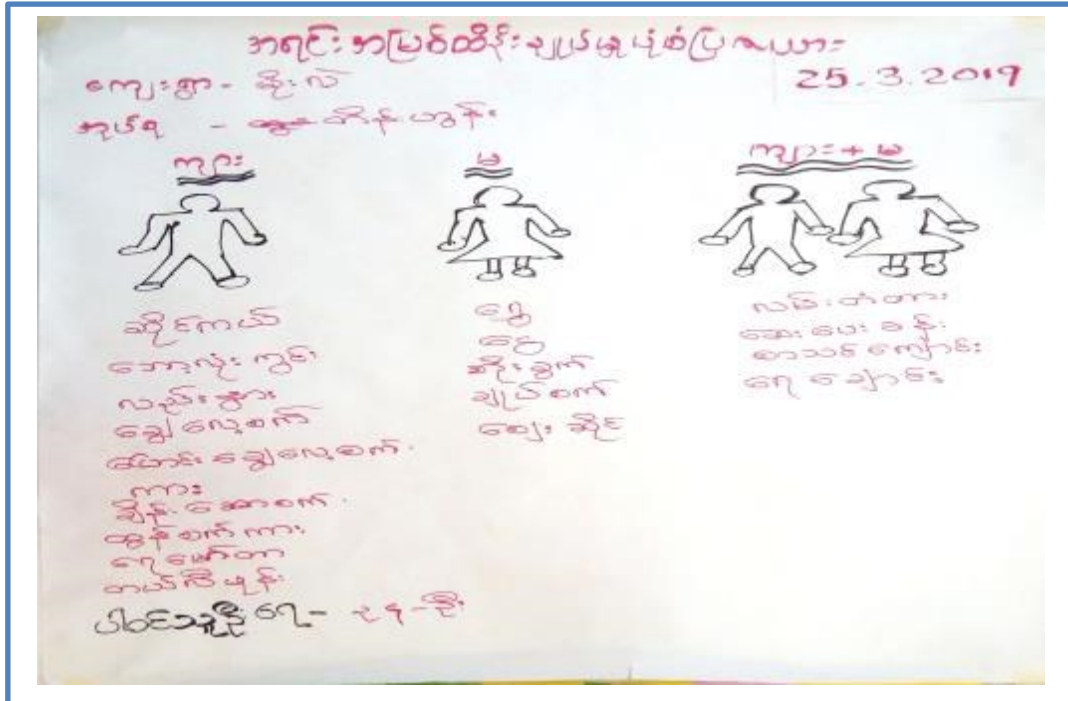 အရင်းအမြစ်ထိန်းချုပ်မှုပုံစံပြဇယား
25.3.2019
ကျေးရွာ - ဆိုးလဲ
အုပ်စု - တိန်ယွန်း
ကျား
မ
ကျား+မ
ဆိုင်ကယ်
ဘော့လုံးကွင်း
လည်းနွား
ချွေလှေ့စက်
ပြောင်းချွေလှေ့စက်
ကား
ချိန်းဆောစက်
ထွန်စက်ကား
ရေမော်တာ
တယ်လီဖုန်း
ရွှေ
ငွေ
အိုးခွက်
ချုပ်စက်
ဈေးဆိုင်
လမ်းတံတား
ဆေးပေးခန်း
စာသင်ကျောင်း
ရေချောင်း
ပါဝင်သူဦးရေ - ၃၄-ဦး